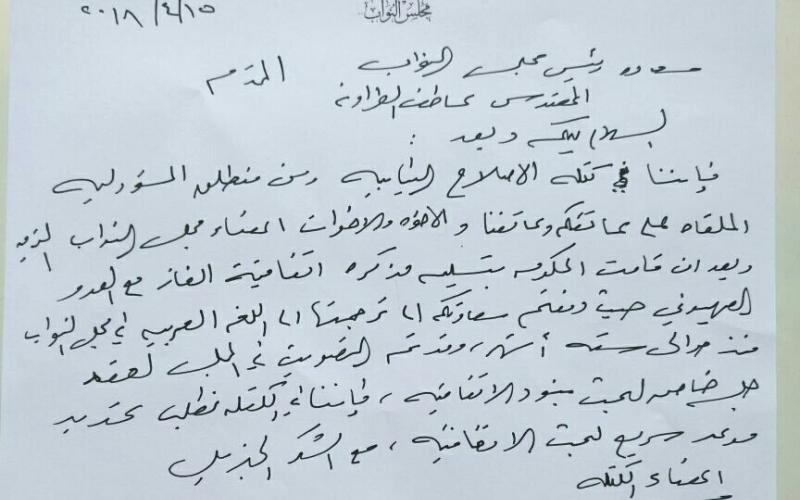 مجلس النواب
٢٠١٨/٤/١٥
سعادة رئيس مجلس النواب
المهندس عاطف الطراونه المحترم
السلام عليكم وبعد :
فإننا في كتلة الاصلاح النيابيه ومن منطلق المسؤوليه
الملقاه على عاتقكم وعاتقنا والاخوه والاخوات اعضاء مجلس النواب
وبعد ان قامت الحكومه بتسليم مذكره اتفاقية الغاز مع العدو
الصهيوني حيث دفعتم سعادتكم الى ترجمتها الى اللغه العربيه في مجلس النواب
منذ حوالي سته أشهر، وقد تم التصويت في المجلس لعقد
جلسه خاصه لبحث بنود الاتفاقيه، فإننا في الكتله نطلب تحديد
موعد سريع لبحث الاتفاقيه، مع الشكر الجزيل
اعضاء الكتله